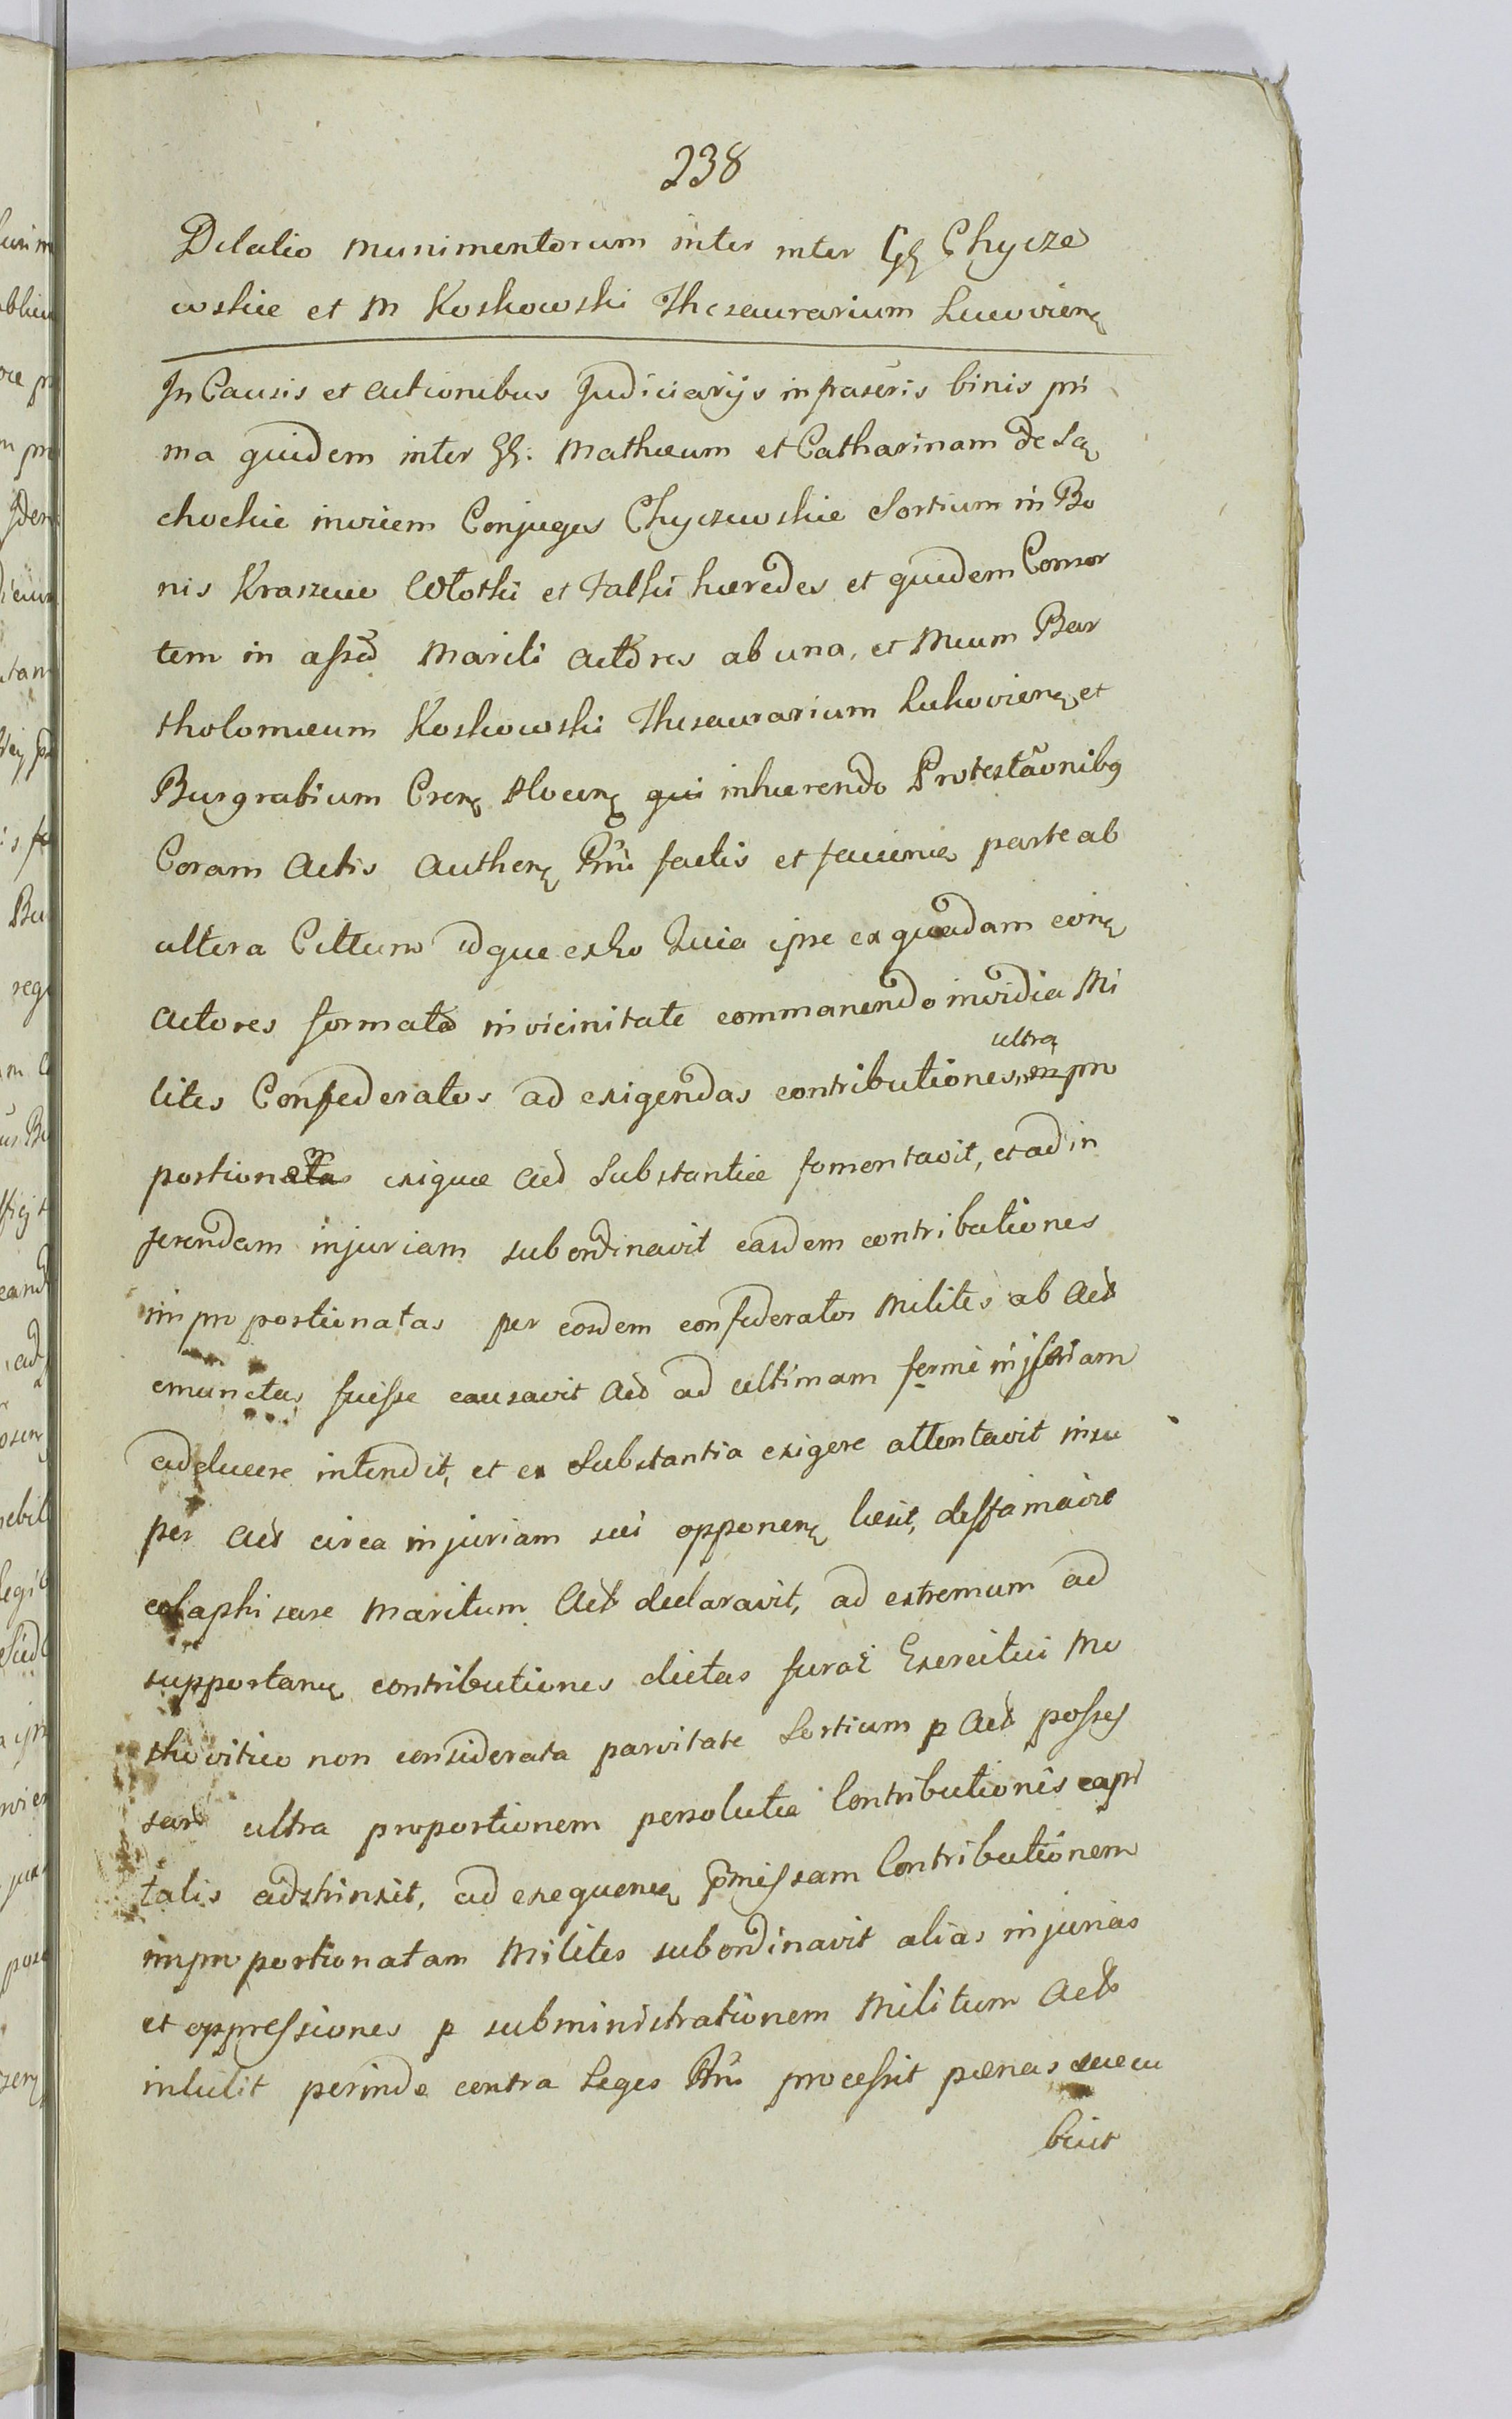 238
Dilatio munimentorum inter inter GG Chycze
wskie et M Koskowski Thesaurarium Lucovien
In Causis et actionibus Judiciarijs infrascris binis pri
ma quidem inter GG. Mathæum et Catharinam de La
chockie invicem Conjuges Chyczewskie Sortium in Bo
nis Kraszewo Włoski et Falki hæredes et quidem Consor
tem in assã Mariti Actores ab una, et Mcum Bar
tholomæum Koskowski Thesaurarium Lukovien et
Burgrabium Cren qui inhærendo Protestãonibq
Coram Actis Authen Pñii factis et faciend parte ab
altera Cittum idque exho Quia ipse ex quadam con
actores formata in vicinitate commanendo invidia Mi
lites Confederatos ad exigendas contributiones ultra pro
portionem exiguæ Act Substantiæ fomentavit, et ad in
ferendam injuriam subordinavit easdem contributiones
improportionatas per eosdem confederatos Milites ab Act
emunctas fuisse causavit Act ad ultimam ferme injuriam
adducere intendit, et ex Substantia exigere attentavit insu
per Act circa injuriam sui opponen læsit, deffamavit
colaphisare Maritum Act declaravit, ad extremum ad
supportand contributiones dictas furaz Exercitui Mo
skovitico non considerata parvitate Sortium p Act posses
sar ultra proportionem persolutæ Contributionis capi
talis adstrinxit, ad exequend pmissam Contributionem
improportionatam Milites subordinavit alias injurias
et oppressiones p subministrationem Militum Act
intulit perinde contra Leges Pñs processit pænas succu
buit